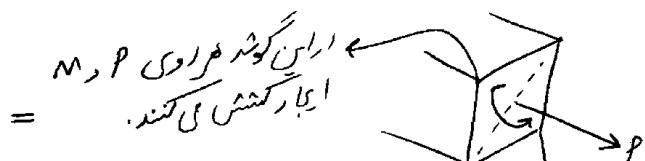 در این گوشه هر دوی P و M
= ایجاد کشش می کنند.
P